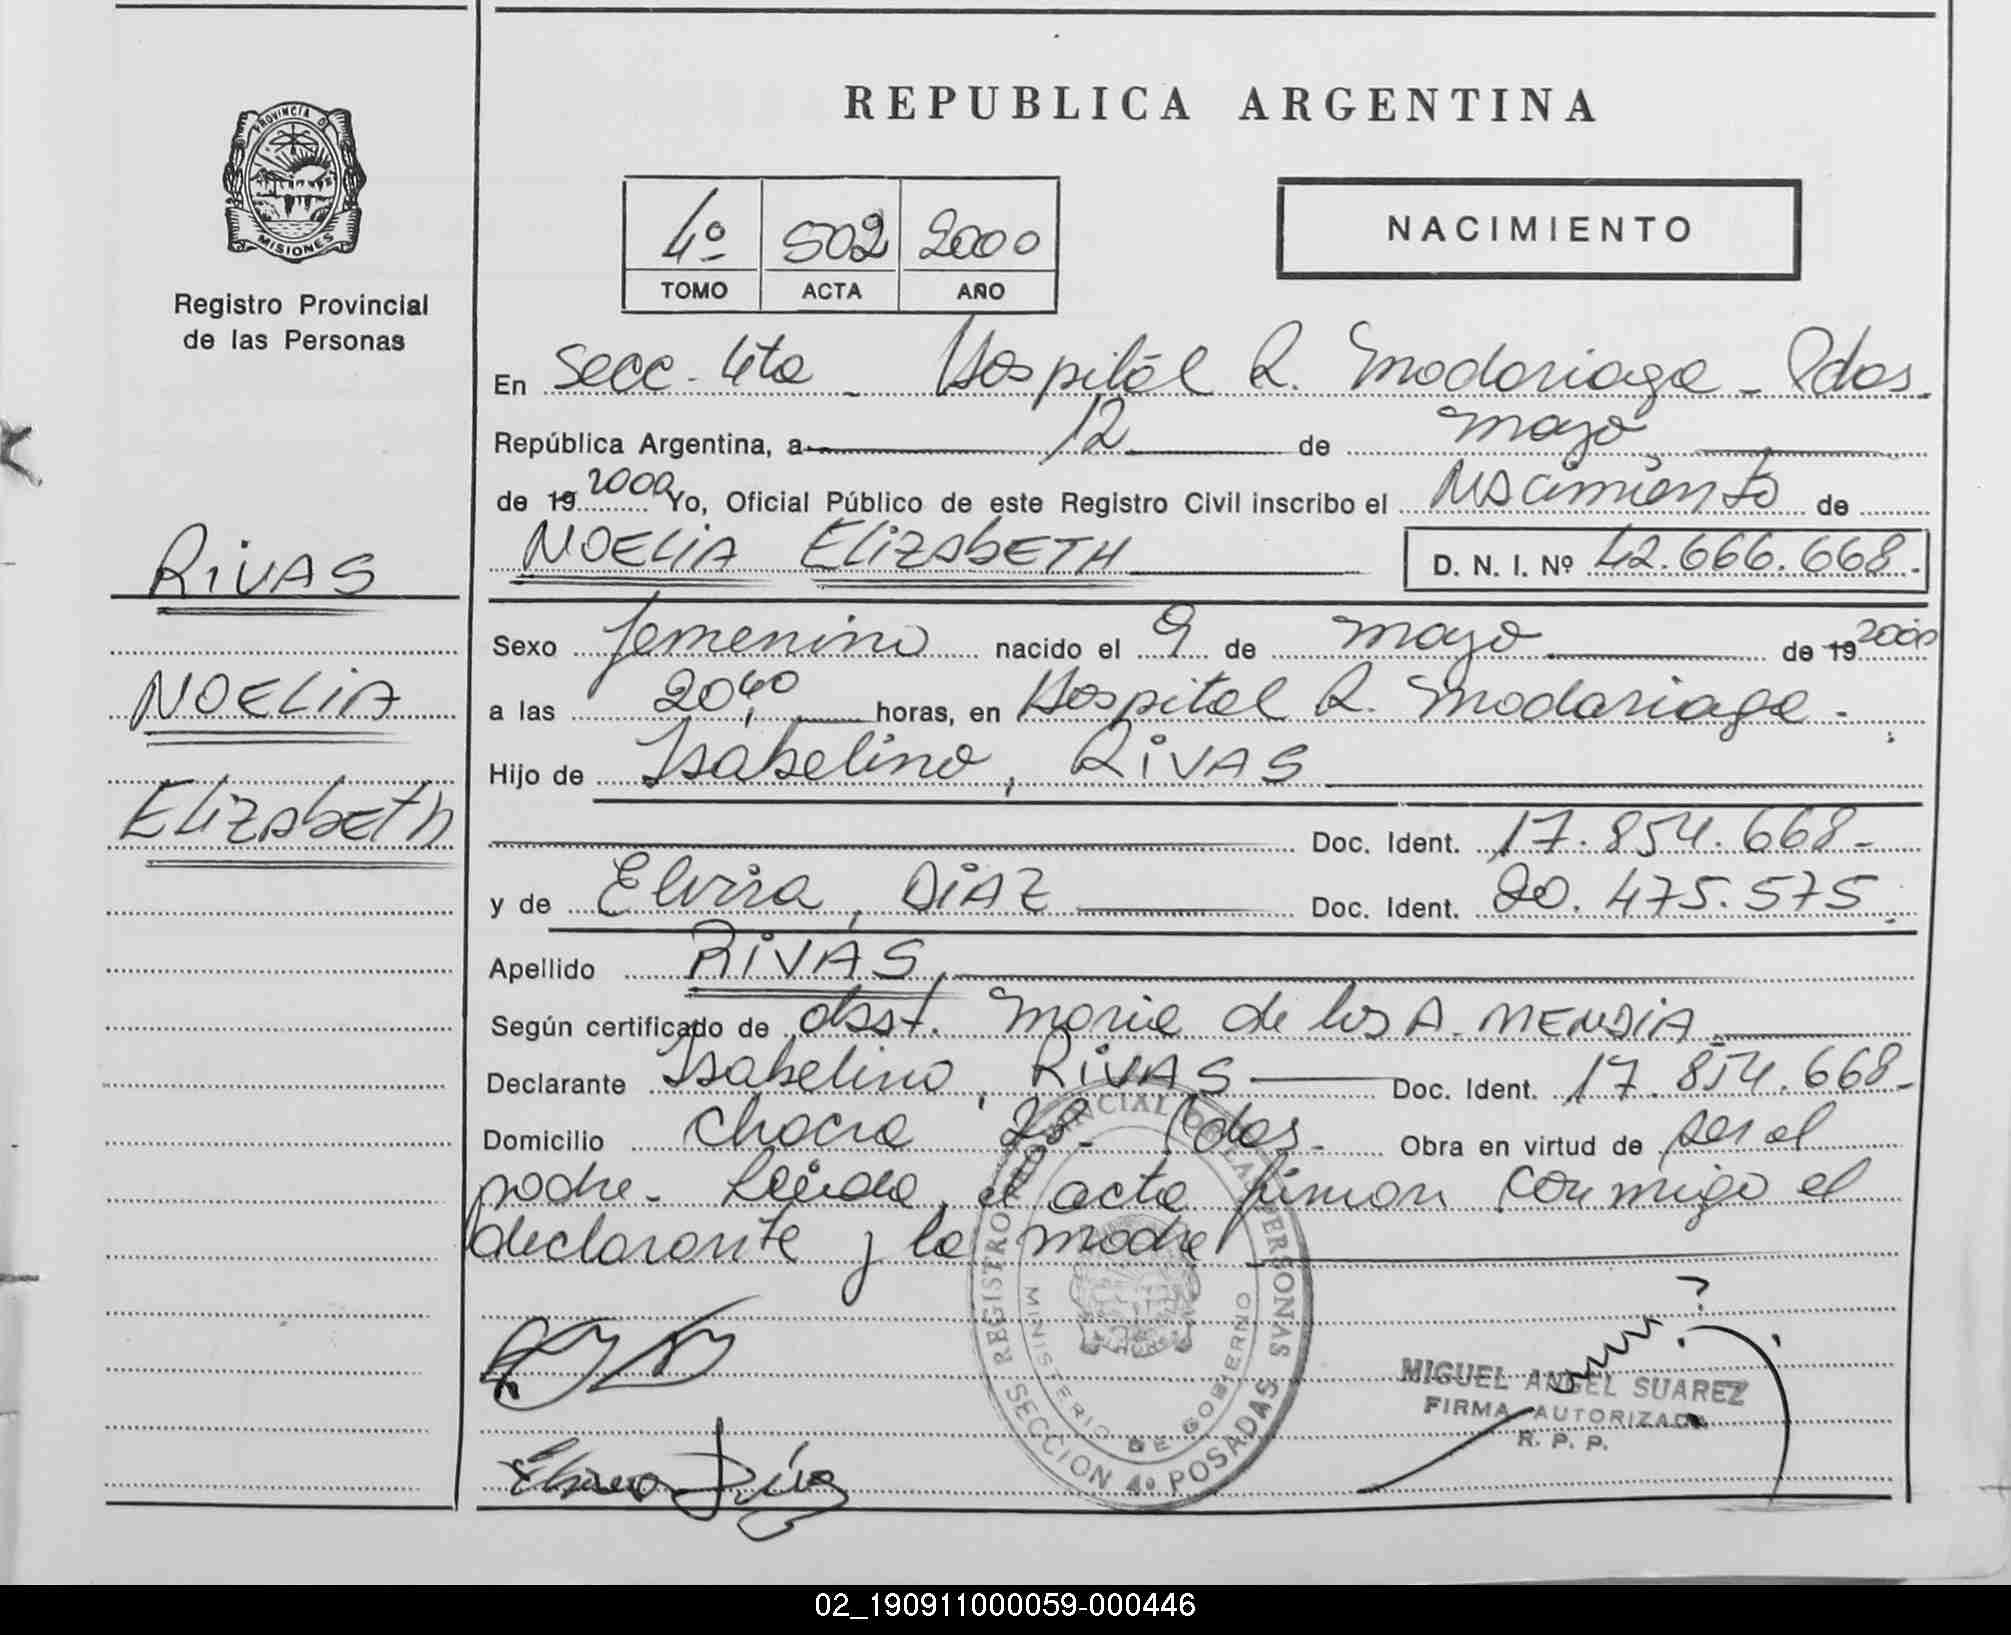 PROVINCIA DE
MISIONES
Registro Provincial
de las Personas
RIVAS
NOELIA
ELIZAbETh
REPUBLICA ARGENTINA
4º 502 2000
TOMO ACTA AÑO
NACIMIENTO
En Secc. 4ta - Hospital R. Madariaga - Pdas.
República Argentina, a 12 de mayo
de 19 2000 Yo, Oficial Público de este Registro Civil inscribo el Nacimiento de
NOELIA ELIZAbETH D. N. I. Nº 42.666.668.-
Sexo femenino nacido el 9 de mayo de 19 2000
a las 20,40 horas, en Hospital R. Madariaga.-
Hijo de Isabelino, RIVAS
Doc. Ident. 17.854.668-
y de Elvira, DIAZ Doc. Ident. 20.475.575.
Apellido RIVAS,
Según certificado de obst. Maria de los A. MENDIA
Declarante Isabelino, RIVAS Doc. Ident. 17.854.668-
Domicilio Chacra 28- Pdas.- Obra en virtud de ser el
padre- Leida el acta firman conmigo el
declarante y la madre
REGISTRO PROVINCIAL DE LAS PERSONAS
MINISTERIO DE GOBIERNO
SECCION 4º POSADAS
Elvira Diaz
MIGUEL ANGEL SUAREZ
FIRMA AUTORIZADA
R. P. P.
02_190911000059-000446